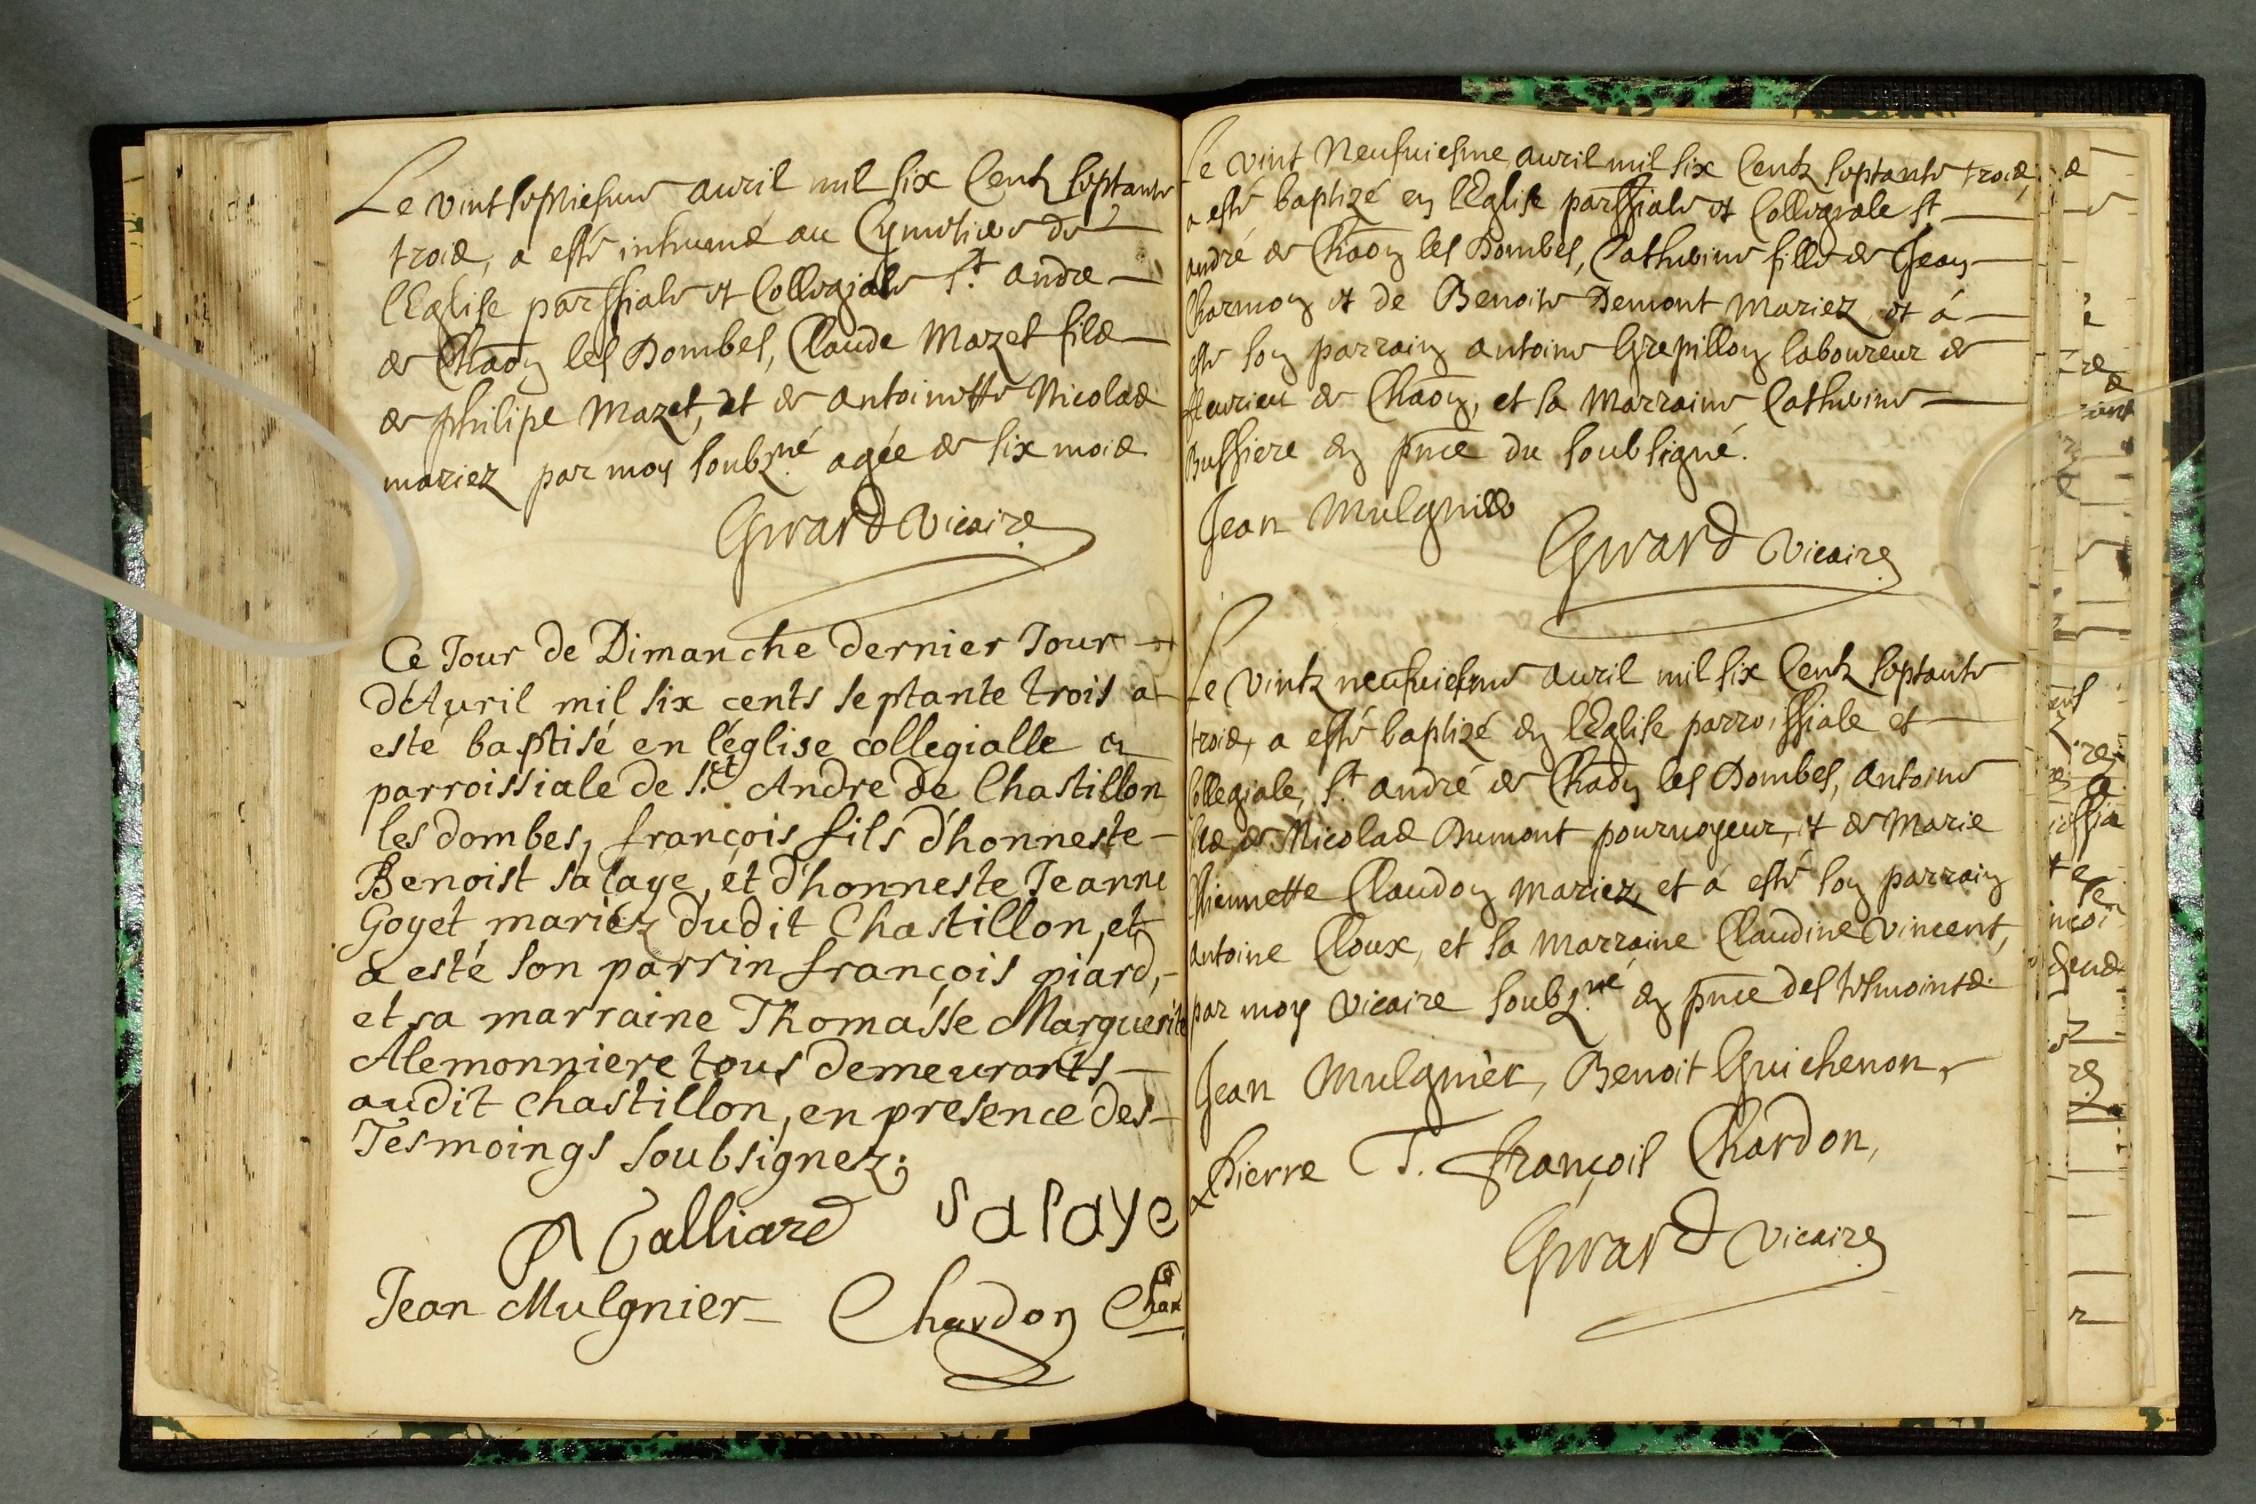 Le vint septiesme auril mil six Centz septante
trois, a esté inhumé au Cymetiere de
l'Eglise parssiale et Collegiale St. andre
de Chaon les Dombes, Claude Mazet fils
de philipe Mazet, et de antoinette Nicolas
mariez par moy soubzné. agée de six mois
Girard vicaire
Ce Jour de Dimanche dernier Jour
d'Auril mil six cents septante trois a
esté baptisé en l'église collegialle &
parroissiale de St. Andre de Chastillon
les dombes, françois fils d'honneste
Benoist salaye, et d'honneste Jeanne
Goyet mariéz dudit Chastillon, et
a esté son parrin françois piard,
et sa marraine Thomasse Marguerite
Alemonniere tous demeurants
audit Chastillon, en presence des
Tesmoings soubsignez;
Talliard salaye
Jean Mulgnier Chardon
Le vint Neufuiesme auril mil six Centz septante trois,
a esté baptizé en l'Eglise parssiale et Collegiale st
andré de Chaon les Dombes, Catherine fille de Jean
Charmon et de Benoite Demont Mariez, et á
esté son parrain antoine Grepillon laboureur de
fleurieu de Chaon, et sa Marraine Catherine
Bussiere en pnce du soubsigné.
Jean Mulgnier
Girard vicaire
Le vintz neufuiesme auril mil six Centz septante
trois, a esté baptizé en l'Eglise parroissiale et
Collegiale, St. andré de Chaon les Dombes, antoine
fils de Nicolas Dumont pouruoyeur, et de Marie
Thiennette Claudon Mariez, et á esté son parrain
antoine Cloux, et sa Marraine Claudine vincent,
par moy vicaire soubzné. en pnce des tesmointz.
Jean Mulgnier, Benoit Guichenon,
& Pierre T. françois Chardon,
Girard vicaire